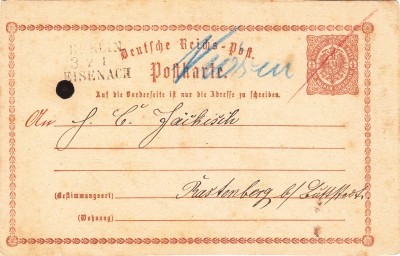 BERLIN
3 2 I
EISENACH
Deutsche Reichs-Post.
Postkarte.
Auf die Vorderseite ist nur die Adresse zu schreiben.
An
(Bestimmungsort) Rastenberg b/
(Wohnung)